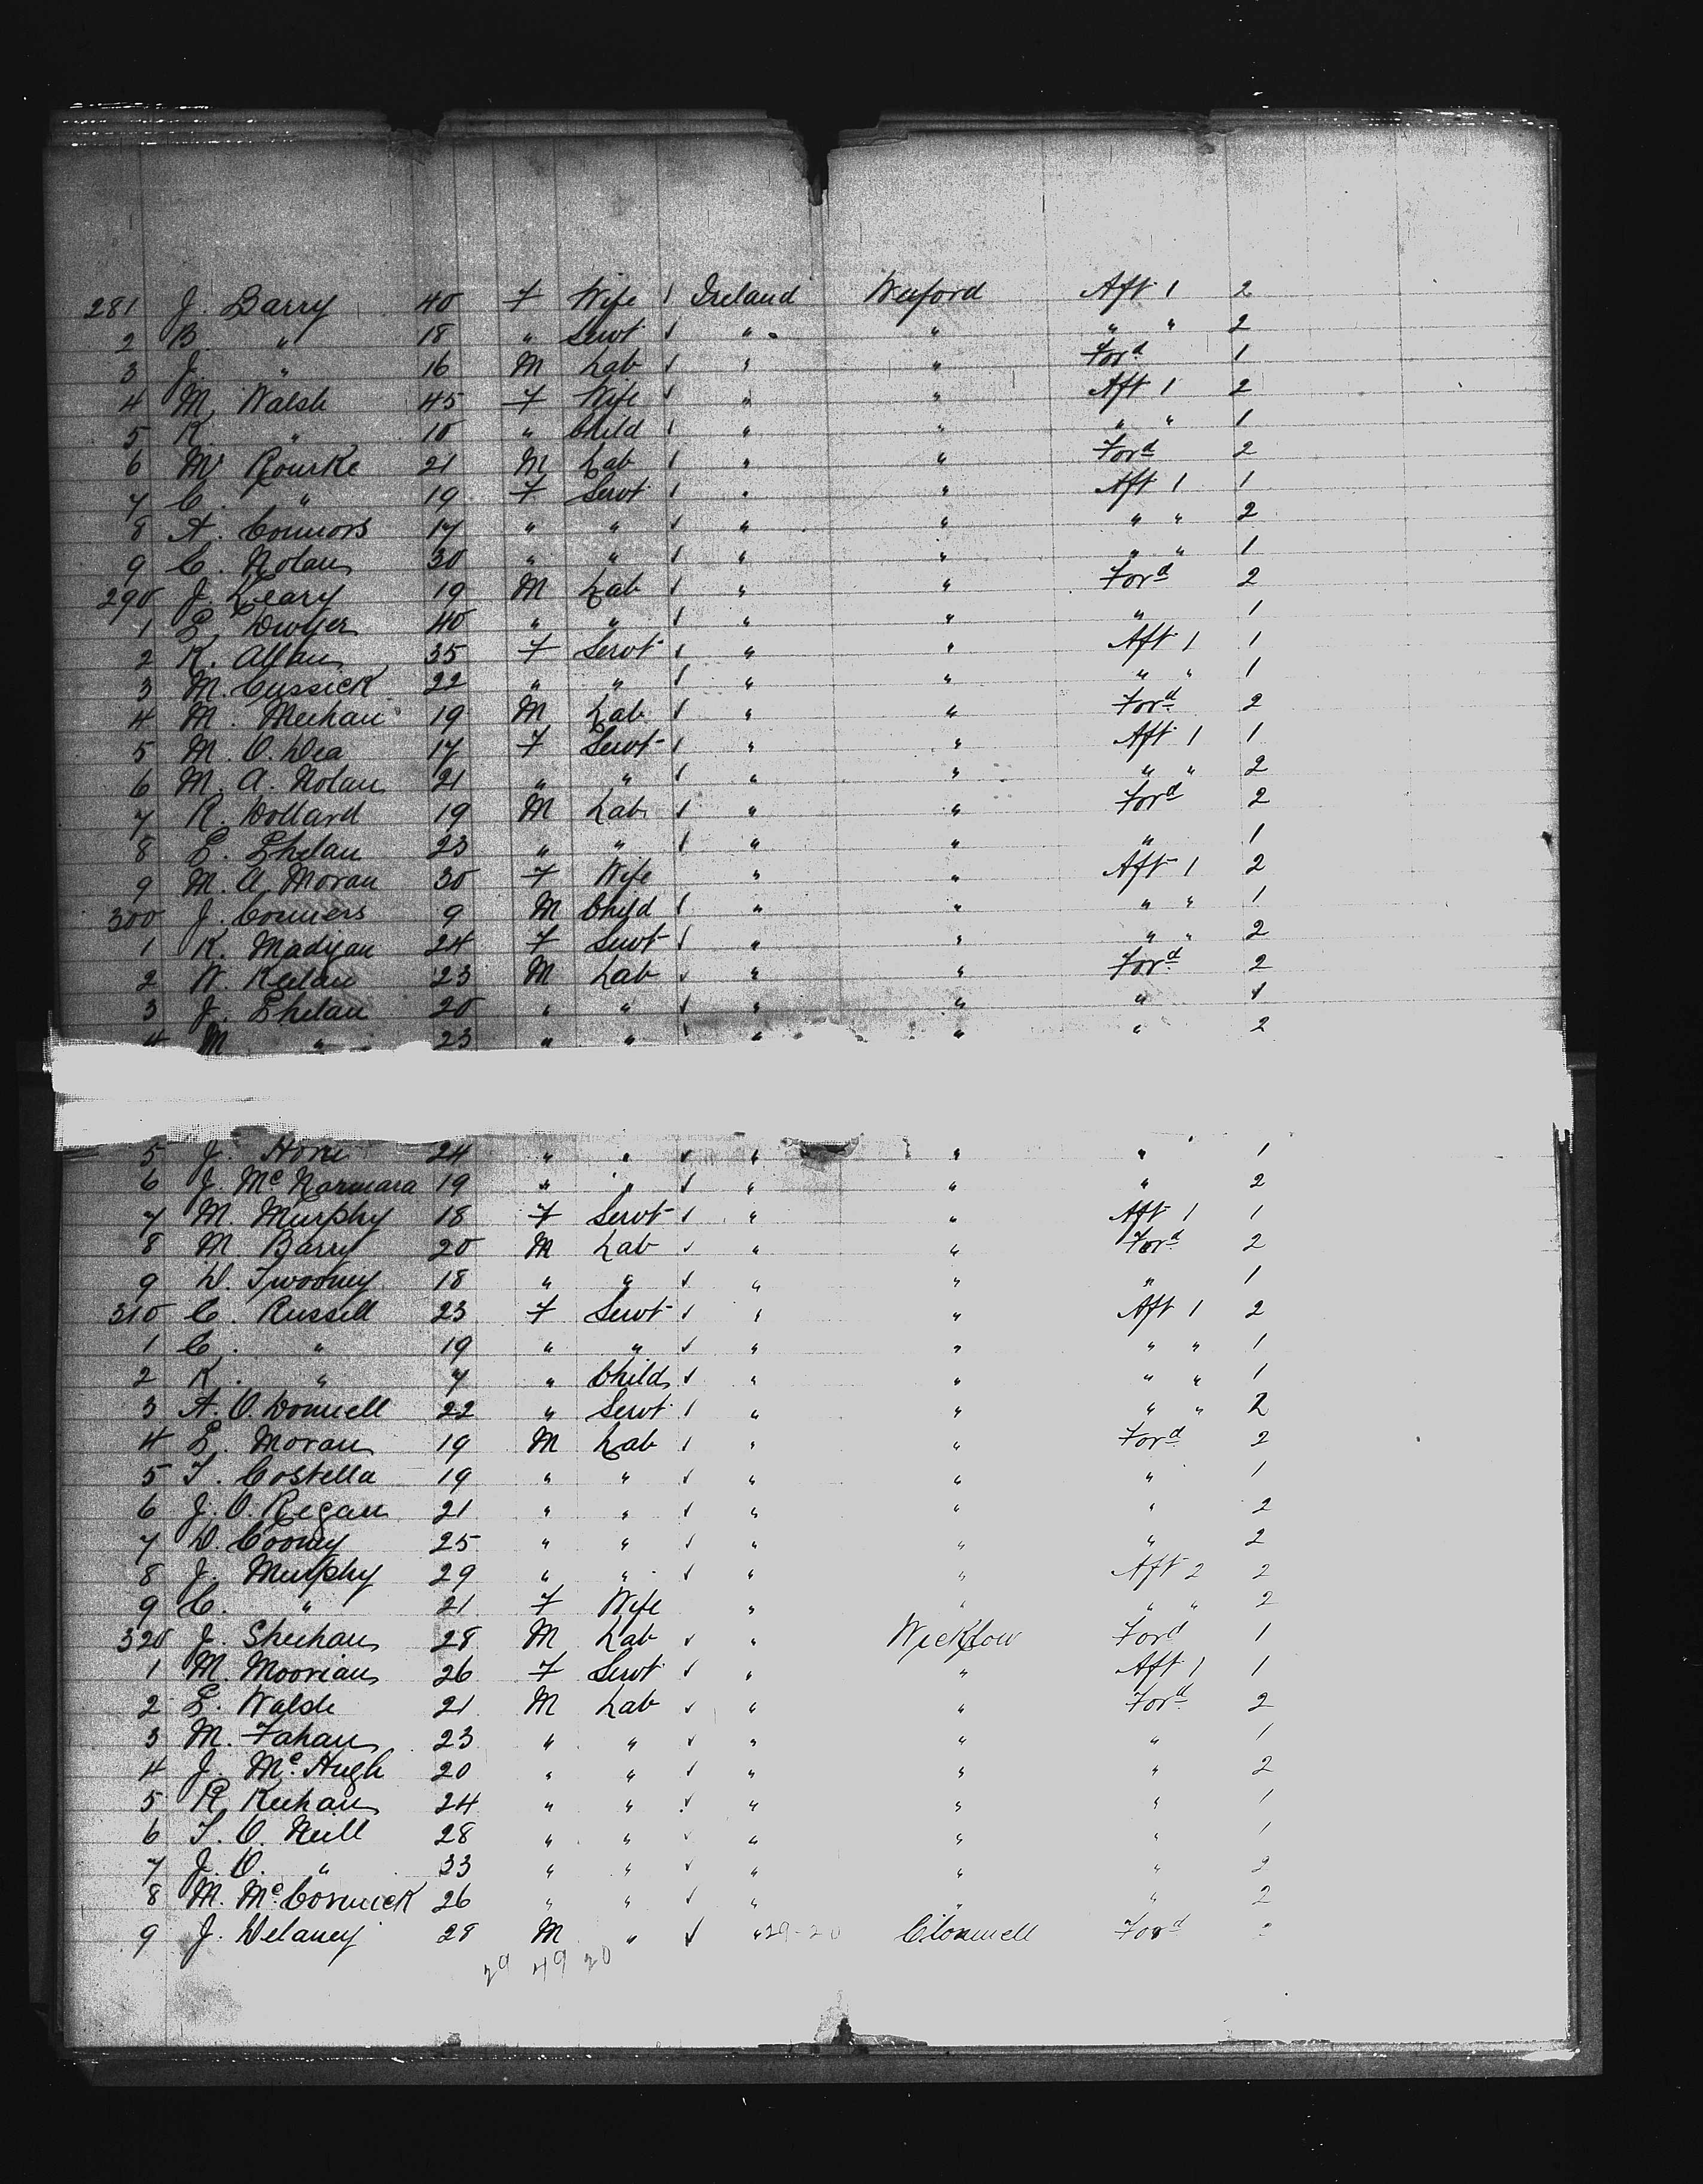 281 J. Barry 40 F Wife Ireland Wexford Aft 1 2
2 B. " 18 " Servt " " " " 2
3 J. " 16 M Lab " " Ford 1
4 M. Walsh 45 F Wife " " Aft 1 2
5 K. " 10 " Child " " " " 1
6 M. Rourke 21 M Lab " " Ford 2
7 C. " 19 F Servt " " Aft 1 1
8 A. Connors 17 " " " " " " 2
9 C. Nolan 30 " " " " " " 1
290 J. Leary 19 M Lab " " Ford 2
1 P. Dwyer 40 " " " " " 1
2 K. Allan 35 F Servt " " Aft 1 1
3 M. Cussick 22 " " " " " " 1
4 M. Meehan 19 M Lab " " Ford 2
5 M. O. Dea 17 F Servt " " Aft 1 1
6 M. A. Nolan 21 " " " " " " 2
7 R. Dollard 19 M Lab " " Ford 2
8 P. Phelan 23 " " " " " 1
9 M. A. Moran 30 F Wife " " Aft 1 2
300 J. Conners 9 M Child " " " " 1
1 K. Madigan 24 F Servt " " " " 2
2 W. Keilan 23 M Lab " " Ford 2
3 J. Phelan 20 " " " " " 1
4 M " 23 " " " " " 2
5 J. Hone 24 " " " " " 1
6 J. Mc Narmara 19 " " " " " 2
7 M. Murphy 18 F Servt " " Aft 1 1
8 M. Barry 20 M Lab " " Ford 2
9 D. Twoomy 18 " " " " " 1
310 C. Russell 23 F Servt " " Aft 1 2
1 C. " 19 " " " " " " 1
2 K. " 7 " Child " " " " 1
3 A. O. Donnell 22 " Servt " " " " 2
4 P. Moran 19 M Lab " " Ford 2
5 T. Costella 19 " " " " " 1
6 J. O. Regan 21 " " " " " 2
7 D. Coomy 25 " " " " " 2
8 J. Murphy 29 " " " " Aft 2 2
9 C. " 21 F Wife " " " " 2
320 J. Sheehan 28 M Lab " Wicklow Ford 1
1 M. Moorian 26 F Servt " " Aft 1 1
2 P. Walsh 21 M Lab " " Ford 2
3 M. Fahan 23 " " " " " 1
4 J. Mc Hugh 20 " " " " " 2
5 R. Keehan 24 " " " " " 1
6 T. O. Neill 28 " " " " " 1
7 J. O. " 33 " " " " " 2
8 M. Mc Cormick 26 " " " " " 2
9 J. Delaney 28 M " " 29-20 Clonmell Ford
29 49 20